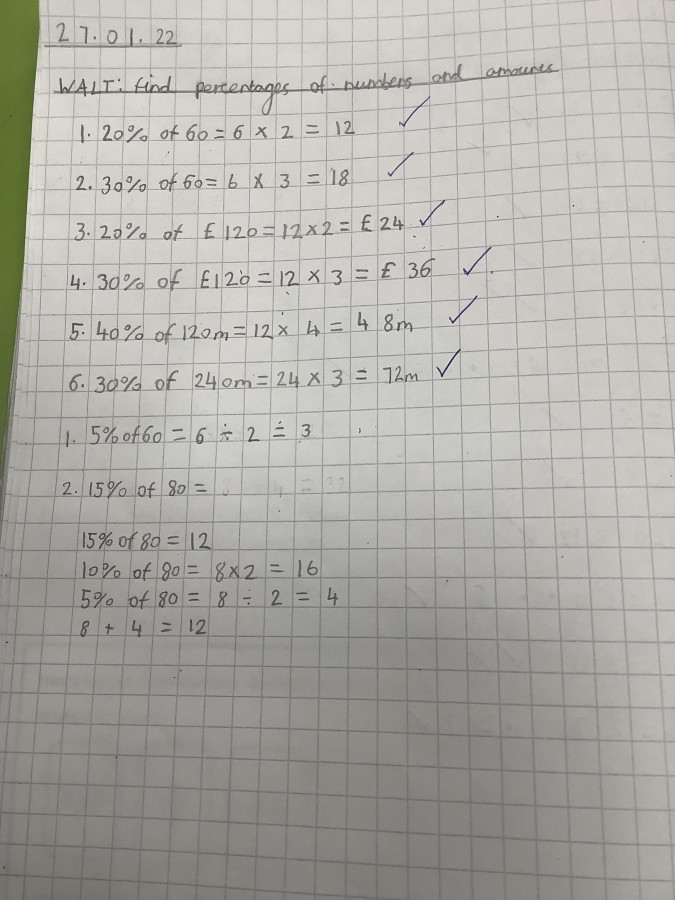 27.01.22
WALT: find percentages of numbers and amounts
1. 20% of 60 = 6 × 2 = 12 ✓
2. 30% of 60 = 6 × 3 = 18 ✓
3. 20% of £120 = 12 × 2 = £24 ✓
4. 30% of £120 = 12 × 3 = £36 ✓
5. 40% of 120m = 12 × 4 = 48m ✓
6. 30% of 240m = 24 × 3 = 72m ✓
1. 5% of 60 = 6 ÷ 2 = 3
2. 15% of 80 =
15% of 80 = 12
10% of 80 = 8×2 = 16
5% of 80 = 8 ÷ 2 = 4
8 + 4 = 12